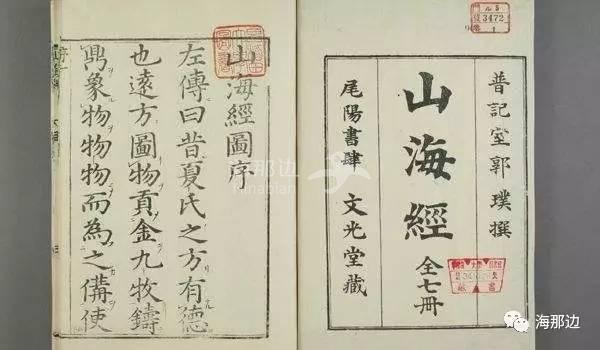 晋記室郭璞撰
山海經
全七冊
尾陽書肆 文光堂藏
3472
1
山海經圖序
左傳曰昔夏氏之方有德
也遠方圖物貢金九牧鑄
鼎象物物物而為之備使
海那边
Hinabian
海那边